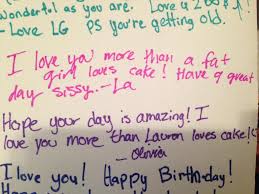 wonderful as you are. Love u
- Love LG PS you're getting old!
I love you more than a fat
girl loves cake! Have a great
day sissy. -La
Hope your day is amazing! I
love you more than Lauron loves cake!
- Olivia
I love you! Happy Birthday!